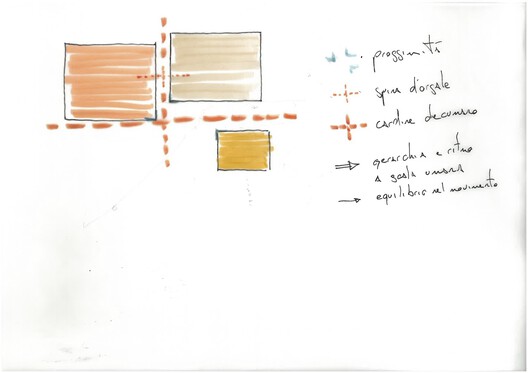 prossimità
spina dorsale
cardine decumano
gerarchia e ritmo
a scala umana
equilibrio nel movimento